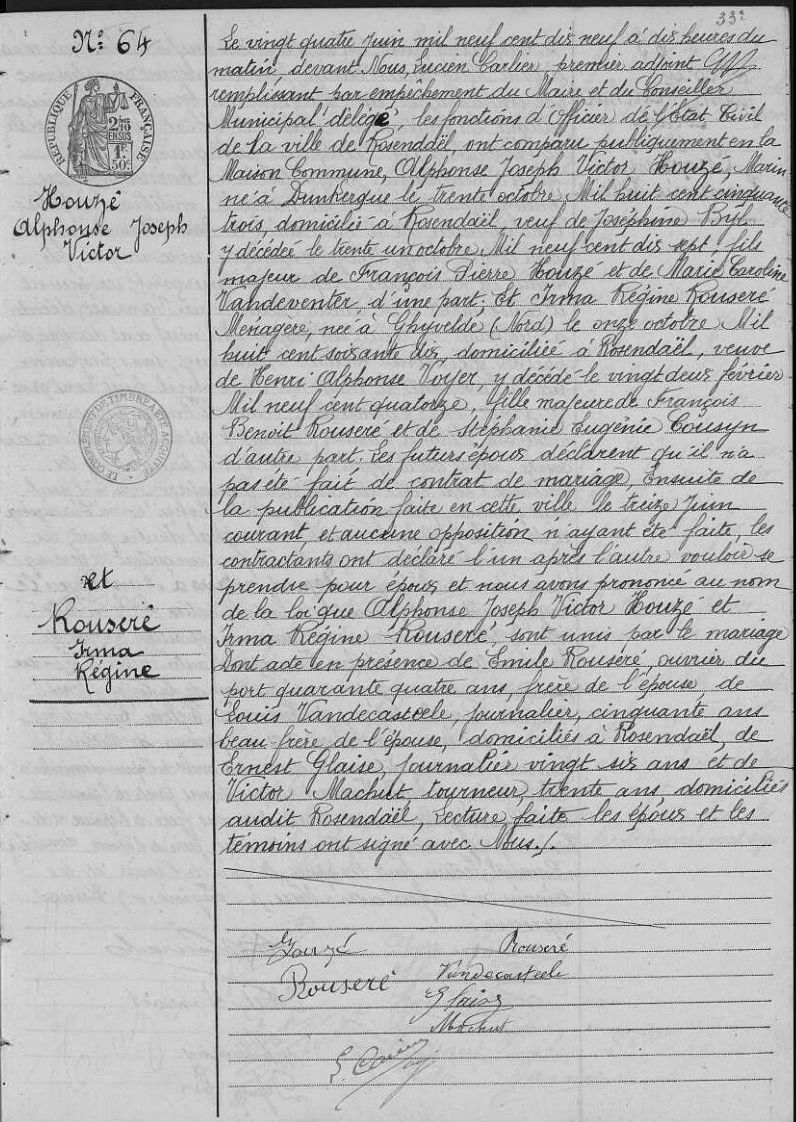 33²
N° 64
RÉPUBLIQUE FRANÇAISE
2/10
EN SUS
1F
50c
Houzé
Alphonse Joseph
Victor
et
Rouseré
Irma
Régine
Le vingt quatre Juin mil neuf cent dix neuf à dix heures du
matin, devant Nous, Lucien Carlier, premier adjoint
remplissant par empêchement du Maire et du Conseiller
Municipal délégé, les fonctions d'Officier de l'Etat Civil
de la ville de Rosendaël, ont comparu publiquement en la
Maison Commune, Alphonse Joseph Victor Houzé, Marin
né à Dunkerque le trente octobre Mil huit cent cinquante
trois, domicilié à Rosendaël, veuf de Joséphine Byl
y décédée le trente un octobre Mil neuf cent dix sept, fils
majeur de François Pierre Houzé et de Marie Caroline
Vandeventer, d'une part; Et Irma Régine Rouseré
Ménagère, née à Ghyvelde (Nord) le onze octobre Mil
huit cent soixante dix, domiciliée à Rosendaël, veuve
de Henri Alphonse Voyer, y décédé le vingt deux février
Mil neuf cent quatorze, fille majeure de François
Benoit Rouseré et de Stéphanie Eugénie Cousyn
d'autre part. Les futurs époux déclarent qu'il n'a
pas été fait de contrat de mariage. Ensuite de
la publication faite en cette ville le treize Juin
courant, et aucune opposition n'ayant été faite, les
contractants ont déclaré l'un après l'autre vouloir se
prendre pour époux et nous avons prononcé au nom
de la loi que Alphonse Joseph Victor Houzé et
Irma Régine Rouseré, sont unis par le mariage
Dont acte en présence de Emile Rouseré, ouvrier du
port quarante quatre ans, frère de l'épouse, de
Louis Vandecasteele, Journalier, cinquante ans
beau-frère de l'épouse, domiciliés à Rosendaël, de
Ernest Glaise, Journalier vingt six ans et de
Victor Machut tourneur, trente ans domiciliés
audit Rosendaël, Lecture faite les époux et les
témoins ont signé avec Nous./.
Houzé
Rouseré
Rouseré
Vandecasteele
Machut